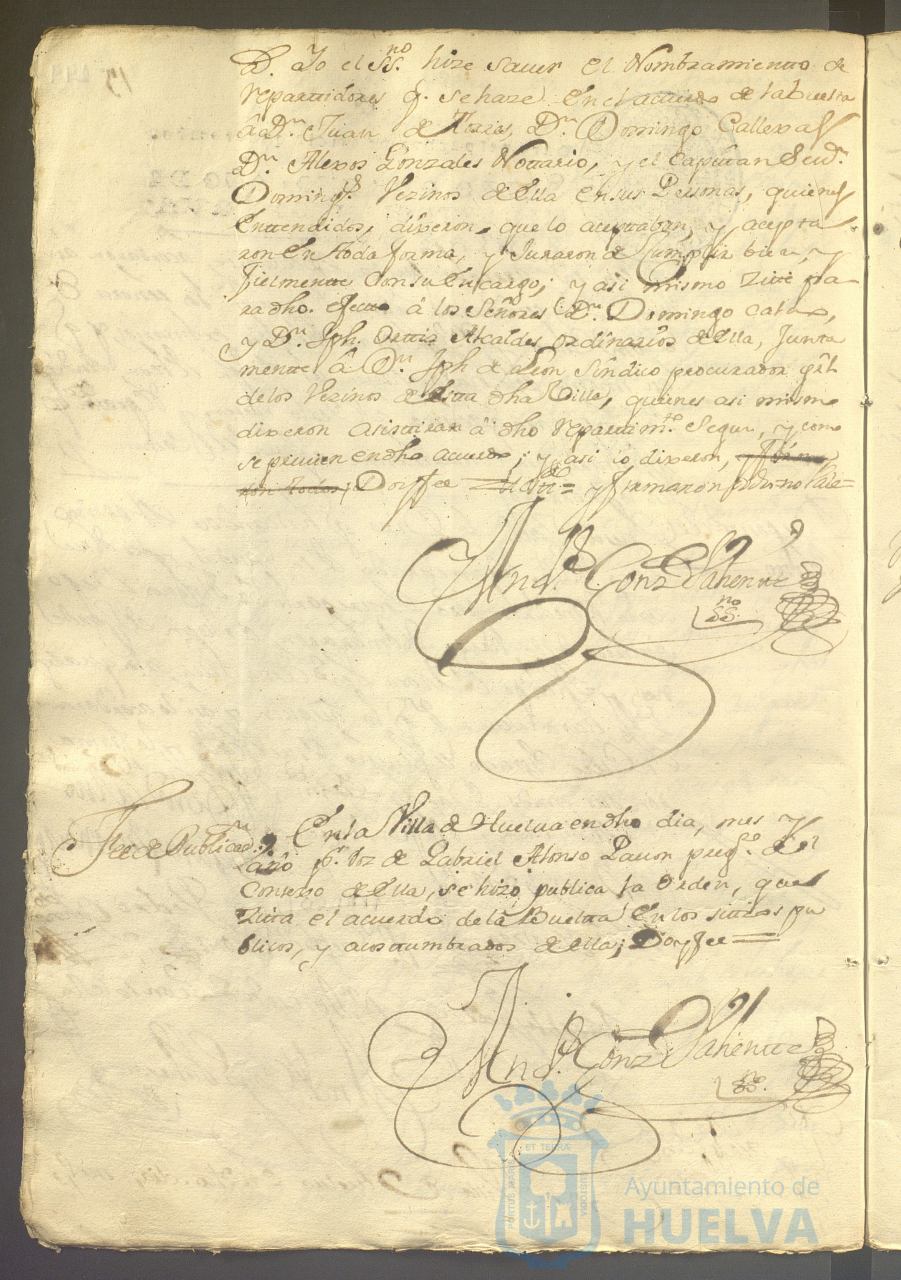 D. Yo el SS.no hize sauer el Nombramientto de
repartidores q. se haze en el acuerdo de la buelta
â D.n Juan de Torres, D.n Domingo Callexas
D.n Alexos Gonzales Nottario, y el Capitan
Doming.s Vezinos de ella en sus Personas, quienes
enttendidos, dixeron, que lo aceptaban, y acepta
ron en ttoda forma, y Juraron de Cumplir bien, y
fielmentte con su encargo; y asi mismo zité pa-
ra dho. efectto â los Señores D.n Domingo
y D.n Jph. Orttiz Alcaldes ordinarios de ella, Junta
mentte â D.n Jph de Leon Sindico procurador gral
de los Vezinos de estta dha Villa, quienes asi mismo
dixeron asisttiran â dho repartim.to segun, y como
se preuien en dho acuerdo; y asi lo dixeron,
Doi ffee = y firmaron
And.s Gonz Valientte
SS.no
Fee de Publicaz.n
En la Villa de Huelua en dho dia, mes y
año p.r voz de Gabriel Alonso Pauon preg.o del
Consexo de ella, se hizo publica la orden, que
zitta el acuerdo de la Buelta en los sittios pu
blicos, y acosttumbrados de ella; Doy fee =
And.s Gonz Valientte
SS.no
PORTUS MARIS
ET TERRAE
CUSTODIA
Ayuntamiento de
HUELVA